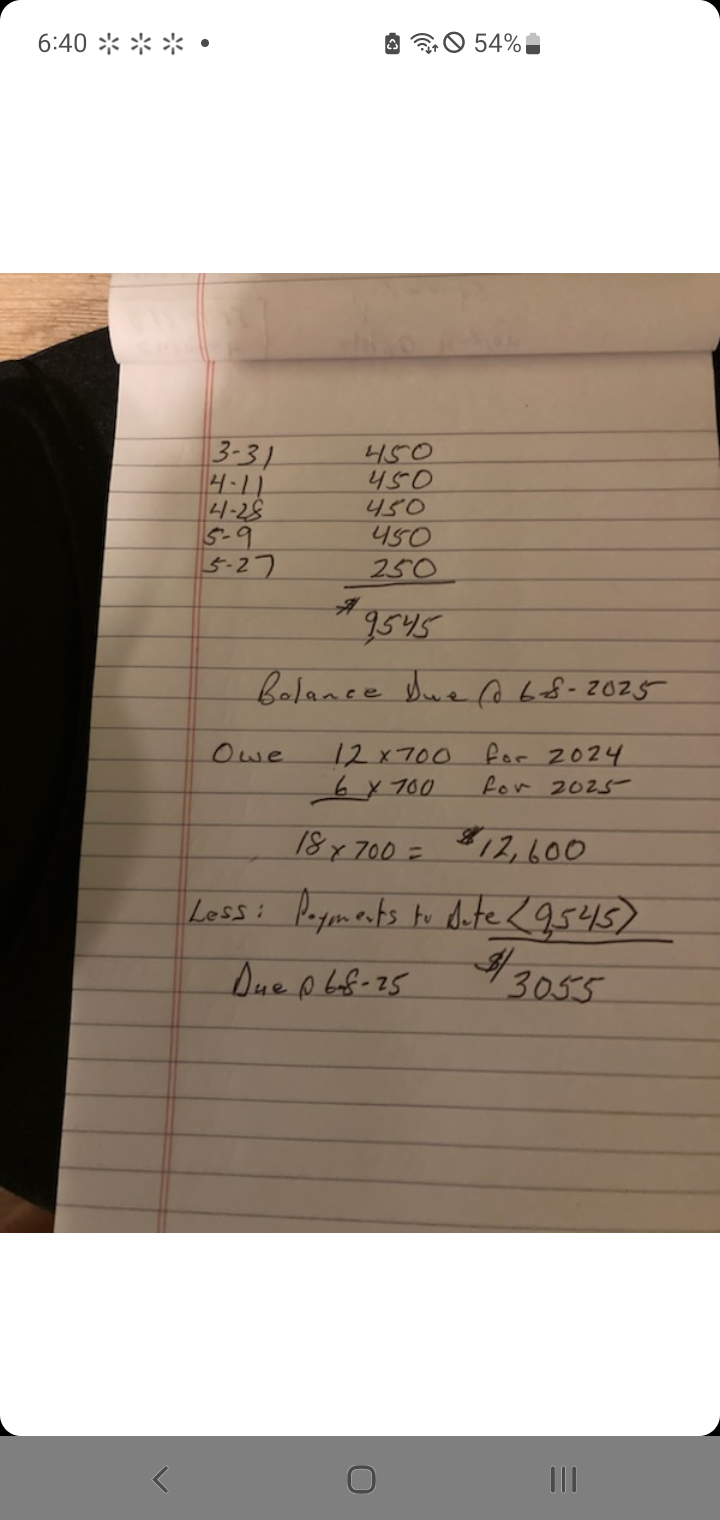 6:40 54%
3-31 450
4-11 450
4-28 450
5-9 450
5-27 250
$ 9,545
Balance Due @ 6-8-2025
Owe 12 x 700 for 2024
6 x 700 for 2025
18 x 700 = $12,600
Less: Payments to Date <9,545>
Due @ 6-8-25 $3055